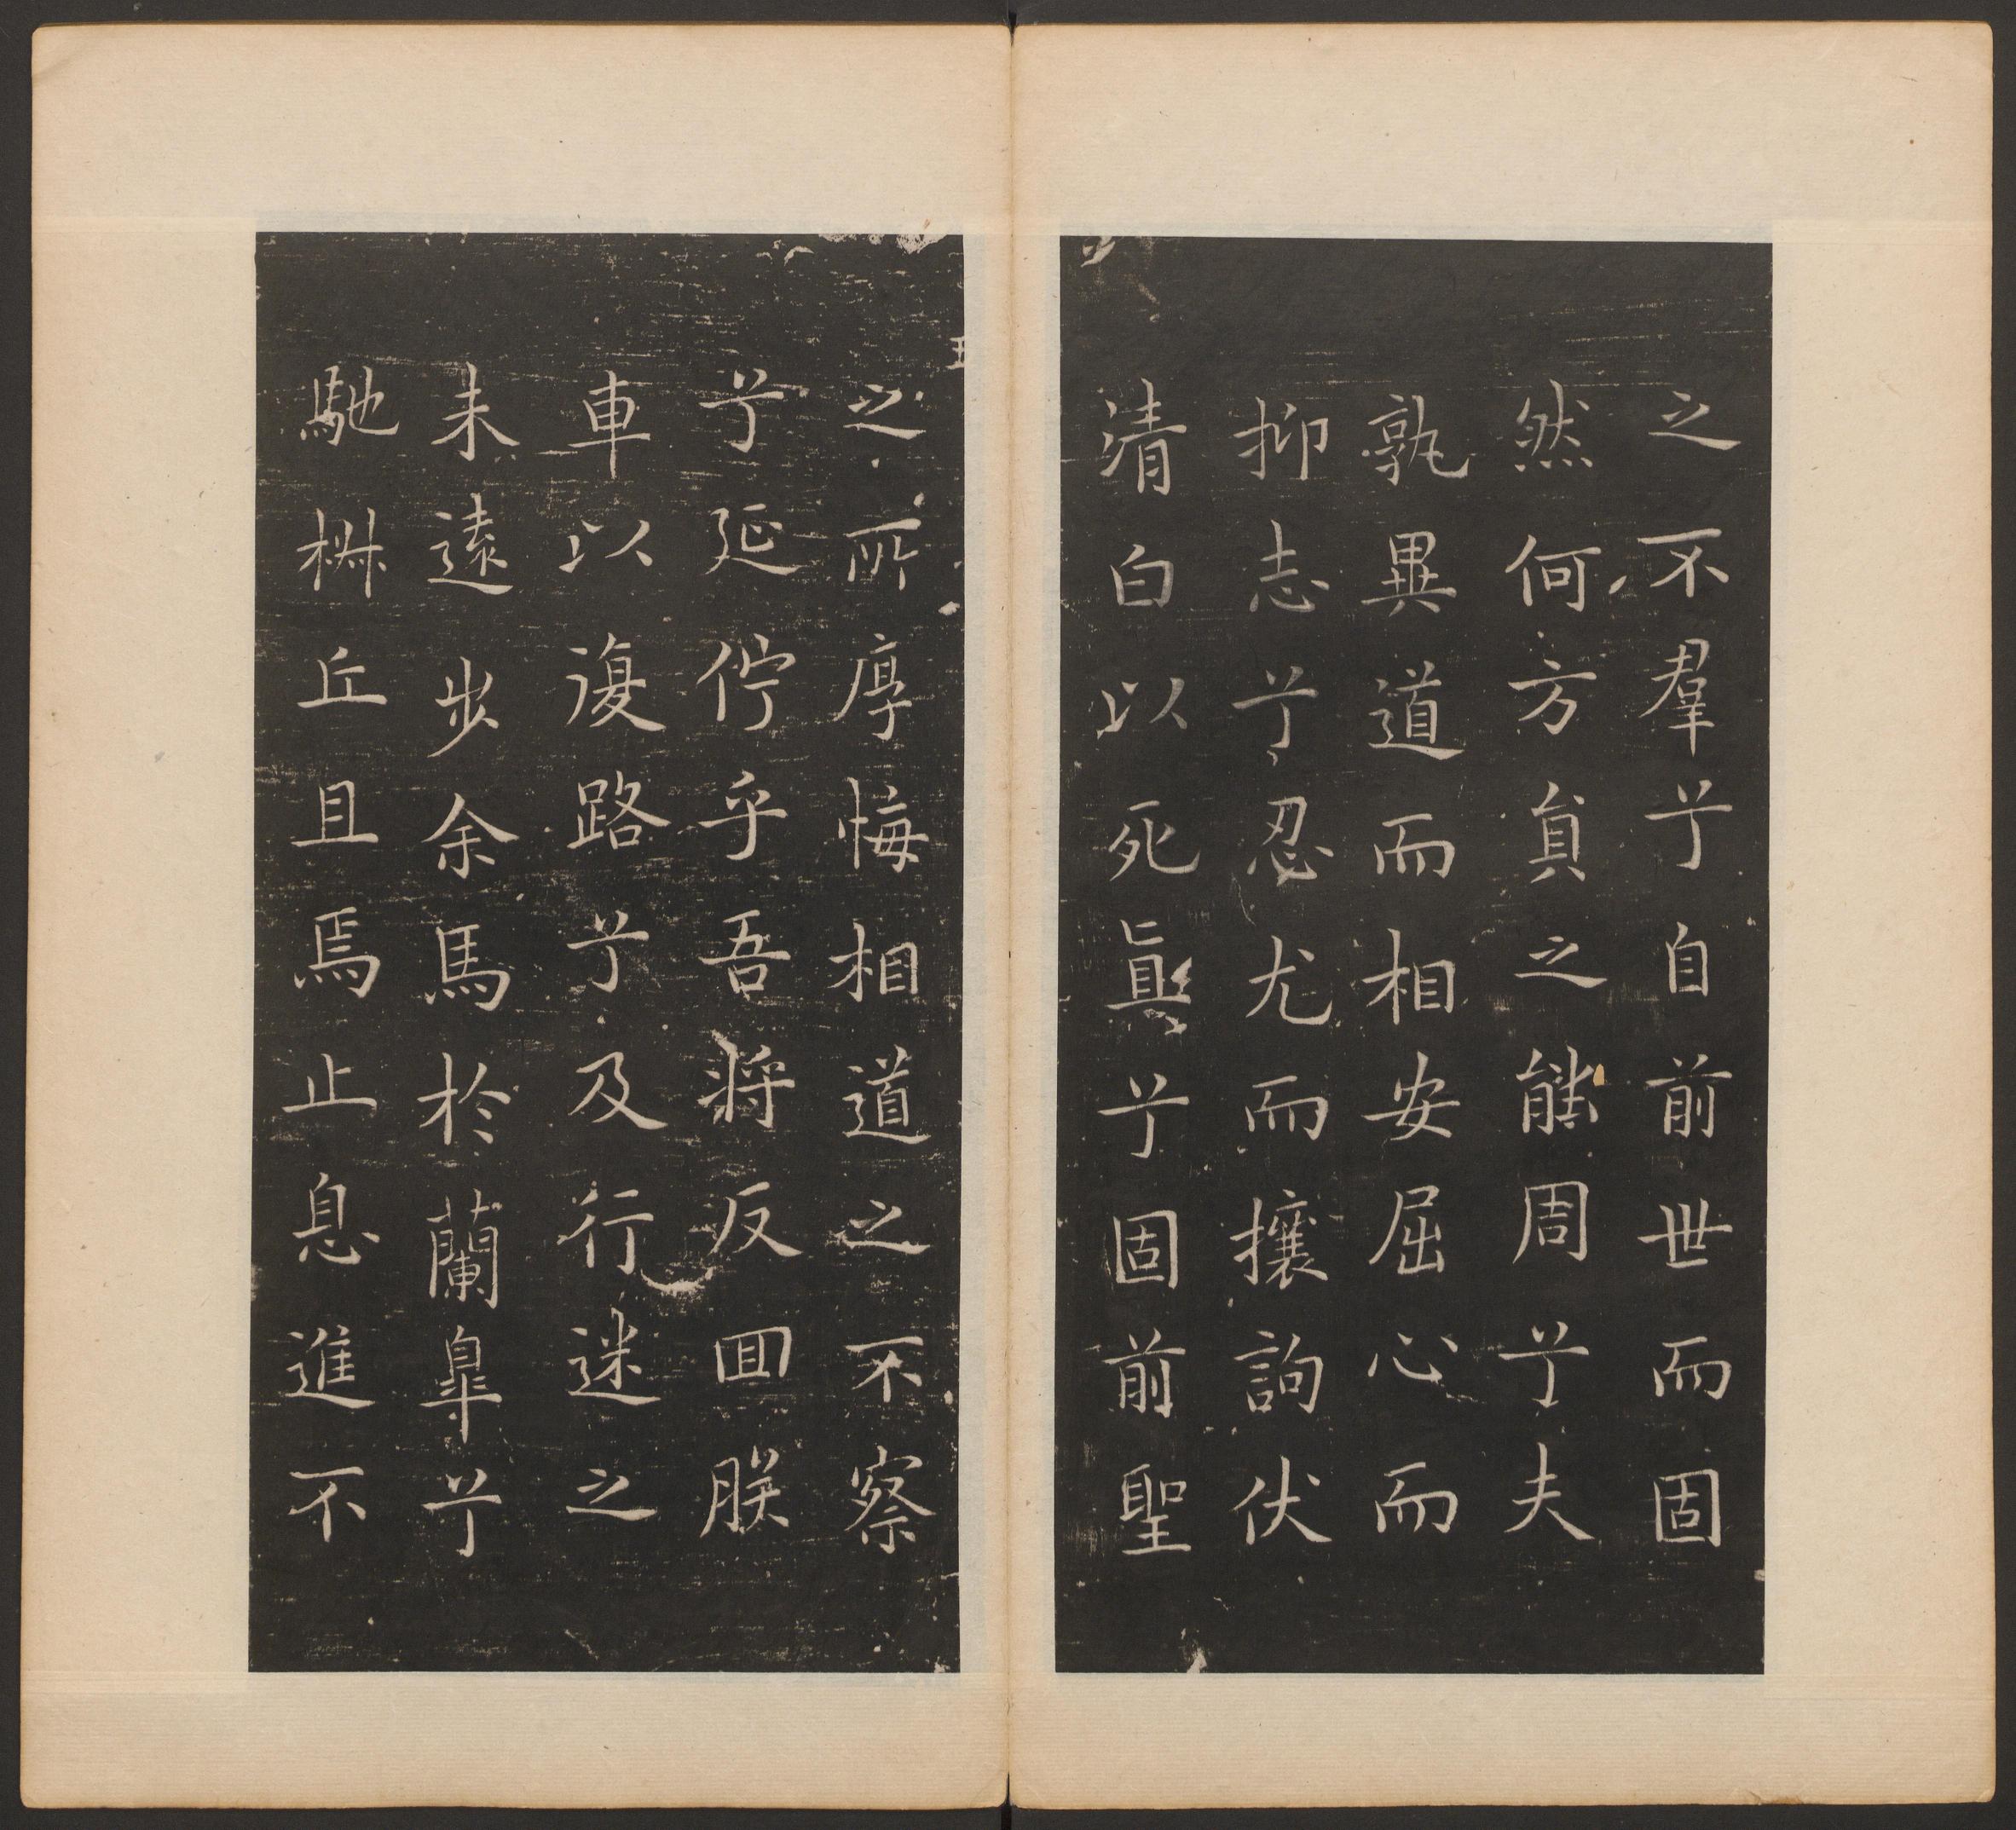 之不羣兮自前世而固
然何方員之能周兮夫
孰異道而相安屈心而
抑志兮忍尤而攘詢伏
清白以死眞兮固前聖
之所厚悔相道之不察
兮延佇乎吾將反回朕
車以復路兮及行迷之
未遠步余馬於蘭皐兮
馳椒丘且焉止息進不